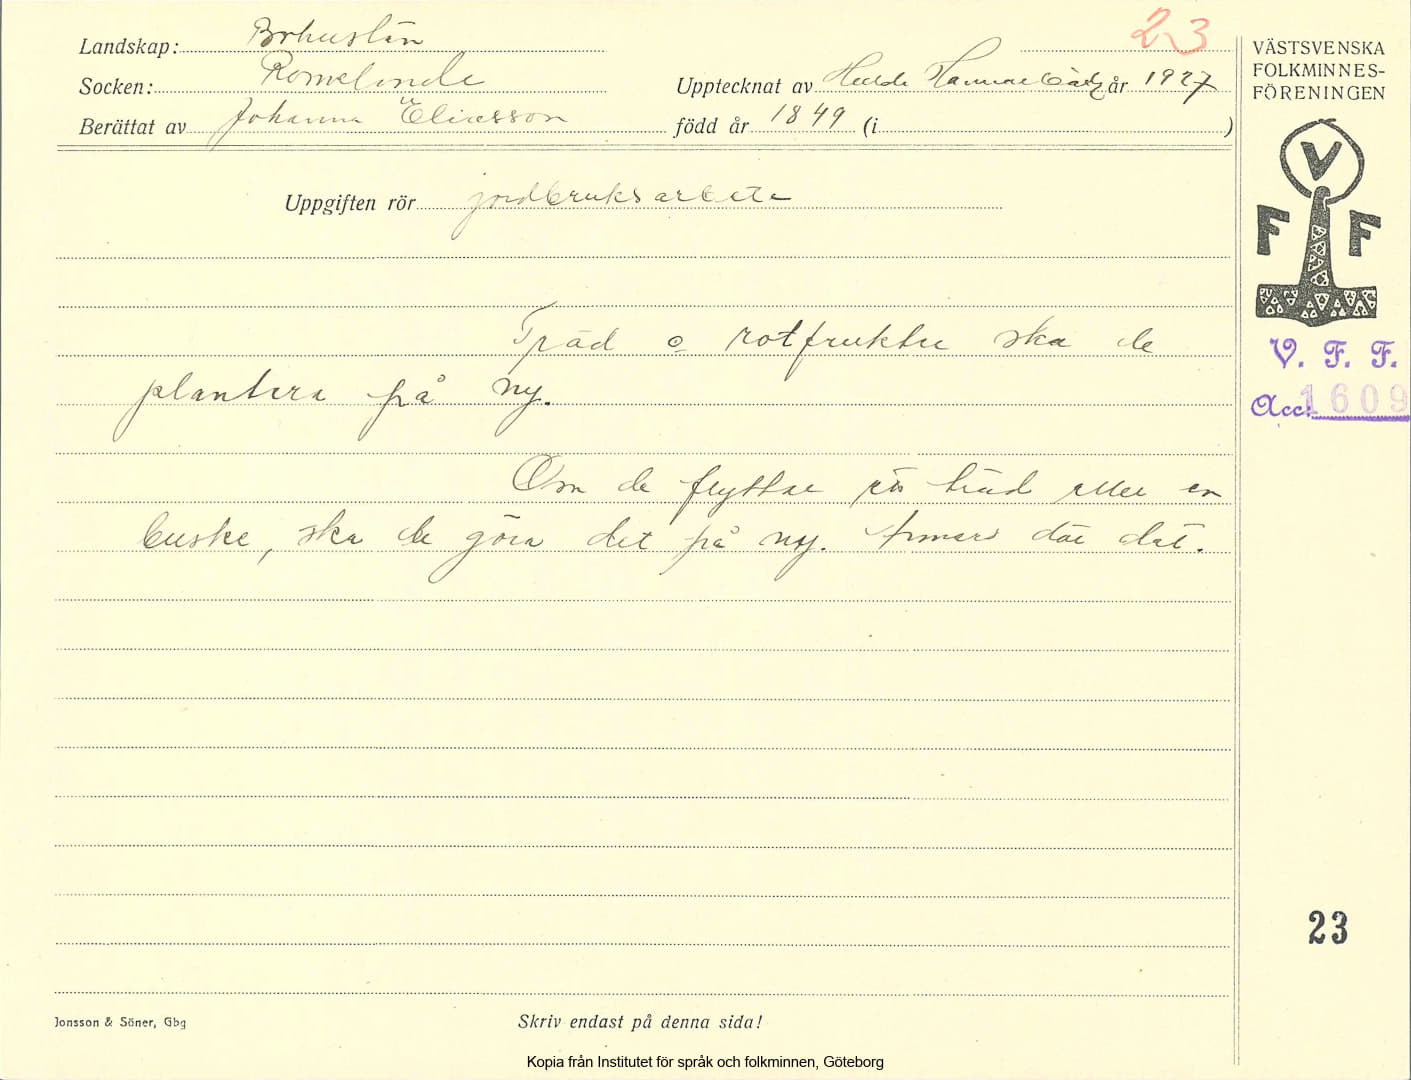 23
Landskap: Bohuslän
Socken: Romelanda
Upptecknat av Hulda Hammarbäck år 1927
Berättat av Johanna Eliasson
född år 1849 (i )
VÄSTSVENSKA
FOLKMINNES-
FÖRENINGEN
V
F F
V. F. F.
Acc. 1609
Uppgiften rör jordbruksarbete
Träd o rotfrukter ska de
plantera på ny.
Om de flyttar ett träd eller en
buske, ska de göra det på ny. Annars dör det.
23
Jonsson & Söner, Gbg
Skriv endast på denna sida!
Kopia från Institutet för språk och folkminnen, Göteborg